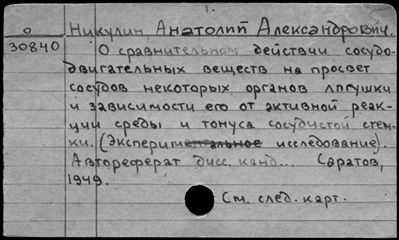 1.
О Никулин, Анатолий Александрович.
30840 О сравнительном действии сосудо-
двигательных веществ на просвет
сосудов некоторых органов лягушки
и зависимости его от активной реак-
ции среды и тонуса сосудистой стен-
ки. (Экспериментальное исследование).
Автореферат дисс. канд... Саратов,
1949.
См. след. карт.